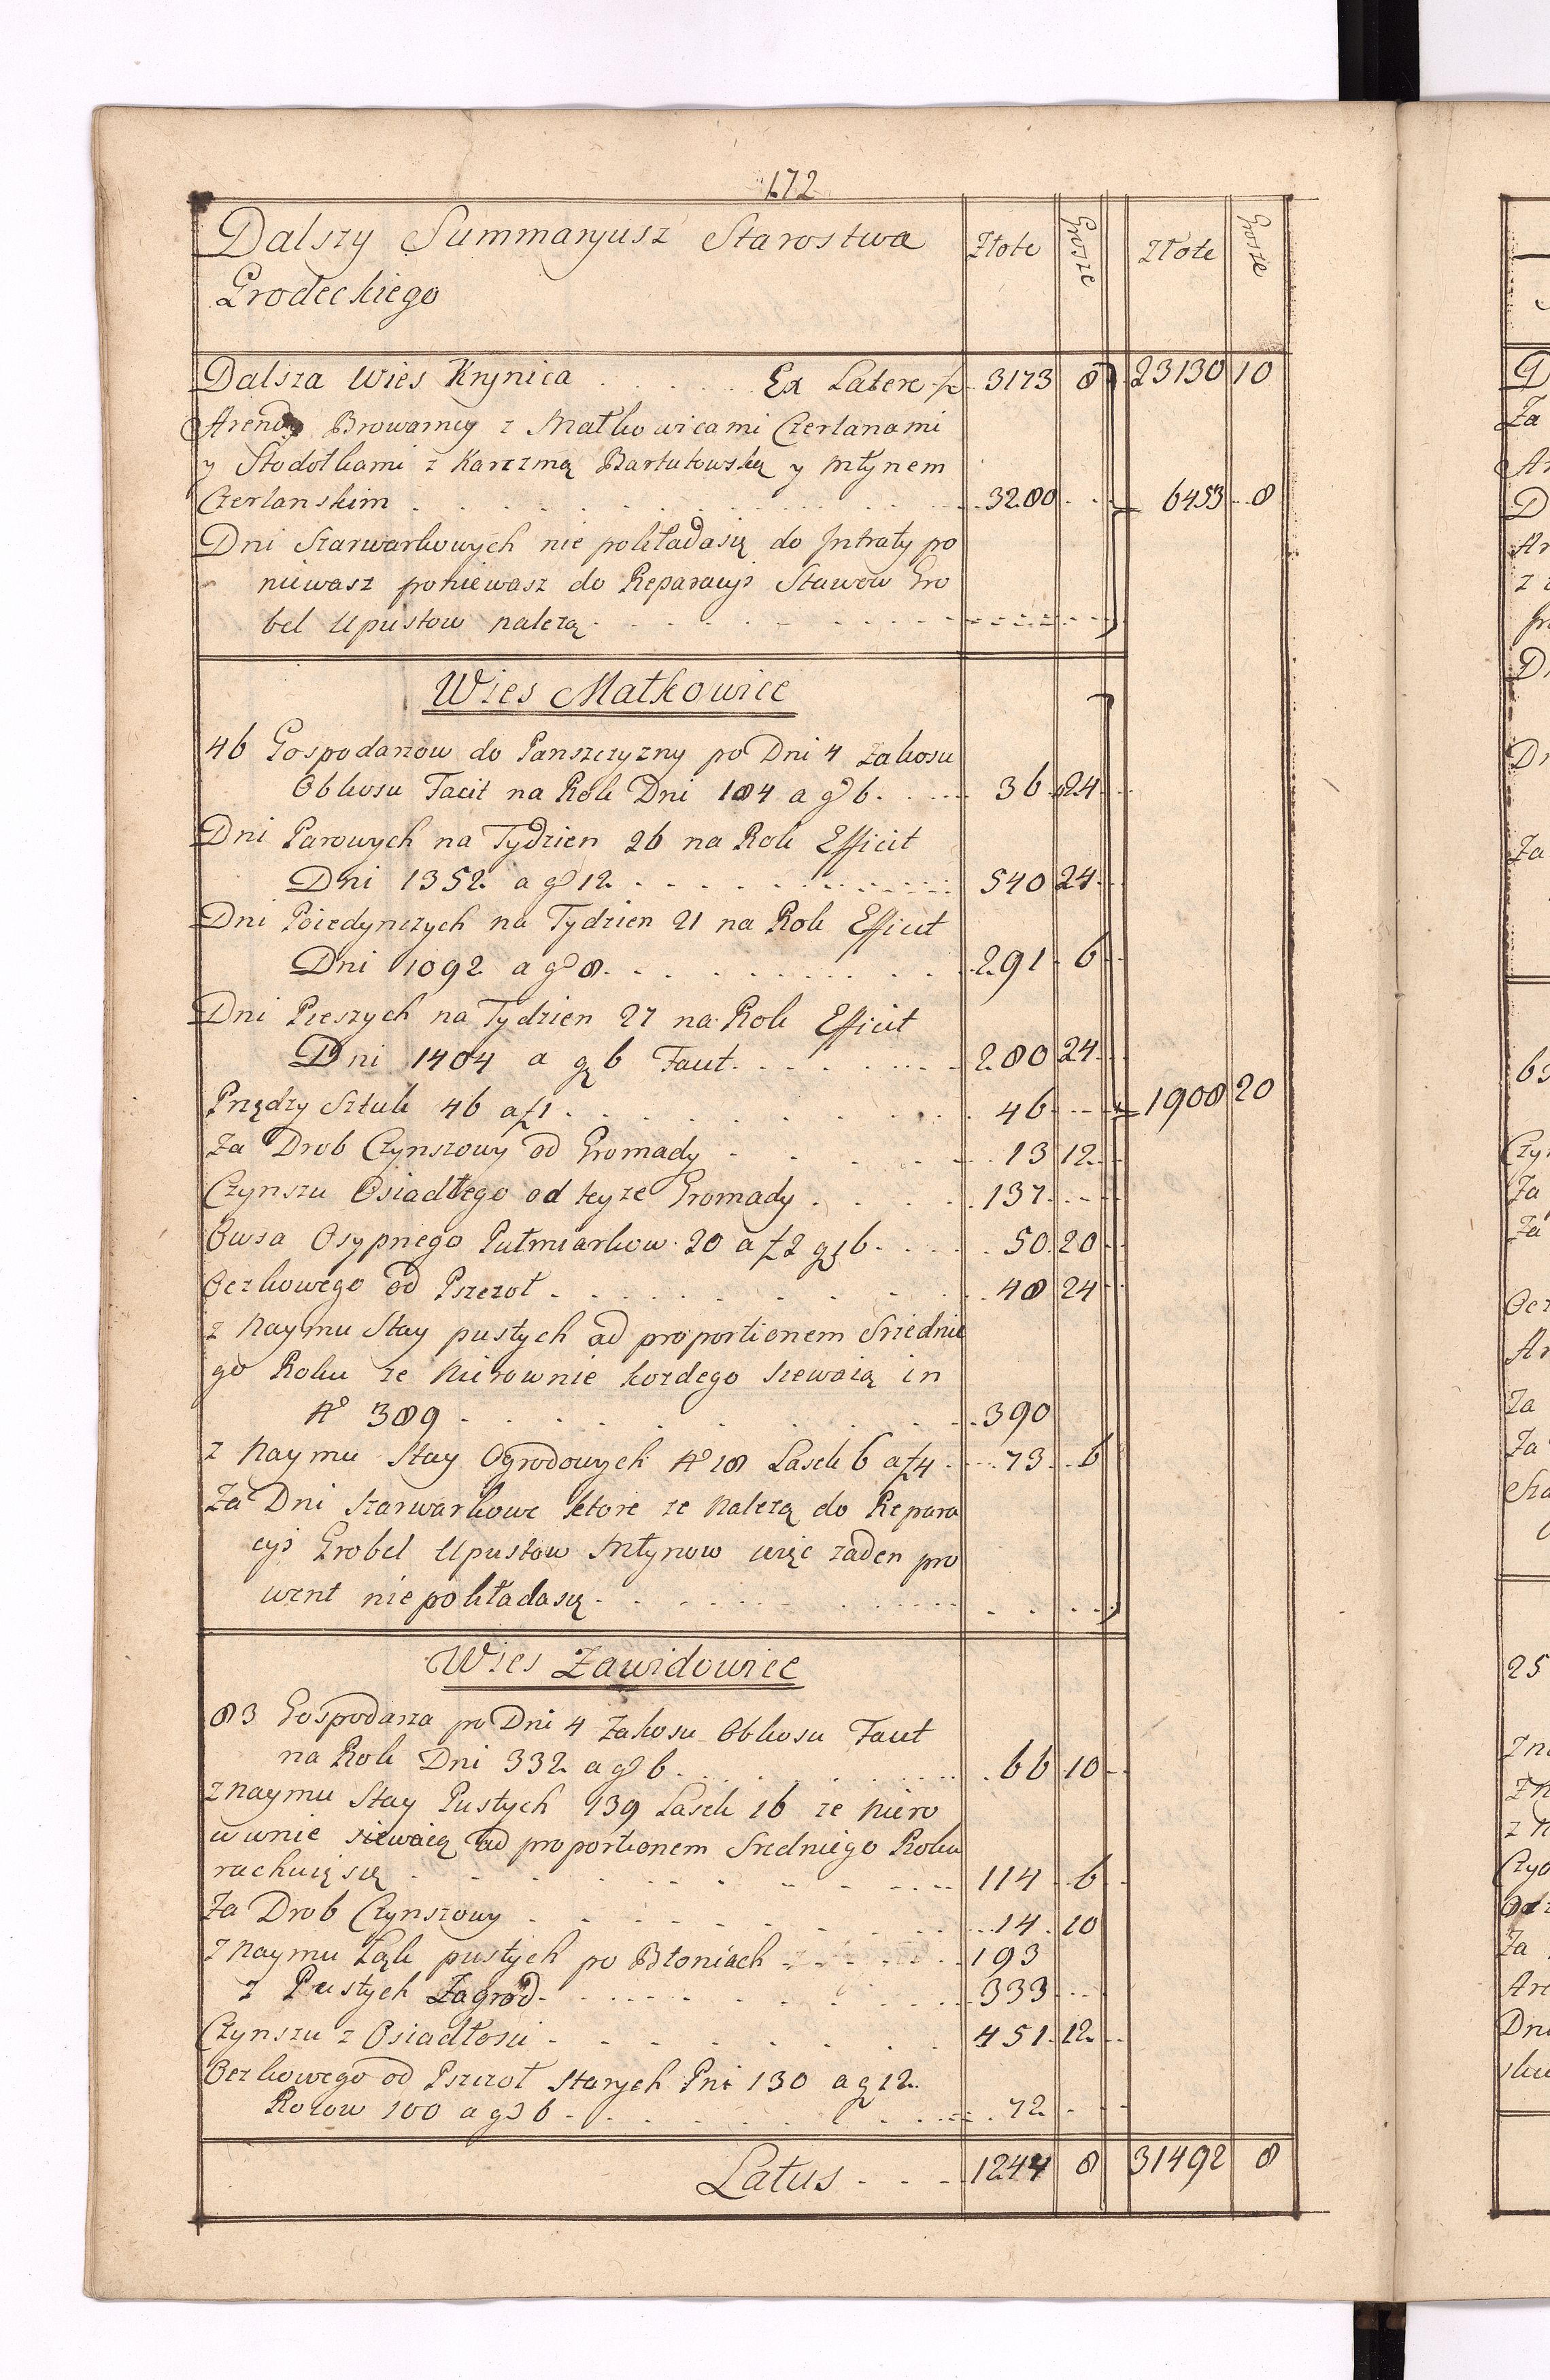 172
Dalszy Summaryusz Starostwa Złote Grosze Złote Grosze
Grodeckiego
Dalsza Wies Krynica . . . . . Ex Latere 3173 8 23130 10
Arendy Browarney z Małkowicami Czerlanami
y Stodołkami z Karczmą Bartutowską y Młynem
Czerlanskim . . . . . 3280 6453 8
Dni Szarwarkowych nie pokładasię do Intraty po
niewasz poniewasz do Reparacyi Stawow Gro
bel Upustow nalezą
Wies Małkowice
46 Gospodarzow do Panszczyzny po Dni 4 Zakosu
Obkosu Facit na Rok Dni 184 a gr 6 . . . 36 24
Dni Parowych na Tydzien 26 na Rok Efficit
Dni 1352 a gr 12 . . . 540 24
Dni Poiedynczych na Tydzien 21 na Rok Efficit
Dni 1092 a gr 8 . . . 291 6
Dni Pieszych na Tydzien 27 na Rok Efficit
Dni 1404 a gr 6 Facit . . . 280 24
Przędzy Sztuk 46 a zł 1 . . . 46 1908 20
Za Drob Czynszowy od Gromady . . . 13 12
Czynszu Osiadłego od teyze Gromady . . . 137
Owsa Osypnego Pułmiarkow 20 a zł 2 gr 16 . . . 50 20
Oczkowego od Pszczoł . . . 48 24
z Naymu Stay pustych ad proportionem Srzednie
go Roku ze Nierownie kozdego siewaią in
No 389 . . . 390
z Naymu Stay Ogrodowych No 18 Lasek 6 a zł 4 . . . 73 6
Za Dni szarwarkowe ktore ze Nalezą do Repara
cyi Grobel Upustow Młynow więc zaden pro
went nie pokładasię
Wies Zawidowice
83 Gospodarza po Dni 4 Zakosu Obkosu Facit
na Rok Dni 332 a gr 6 . . . 66 10
z Naymu Stay Pustych 139 Lasek 16 ze Niero
wwnie siewaią ad proportionem Sredniego Roku
rachuię się . . . 114 6
Za Drob Czynszowy . . . 14 10
z Naymu Łąk pustych po Błoniach . . . 193
z Pustych Zagrod . . . 333
Czynszu z Osiadłosci . . . 451 12
Oczkowego od Pszczoł Starych Pni 130 a gr 12
Roiow 100 a gr 6 . . . 72
Latus . . . 1244 8 31492 8